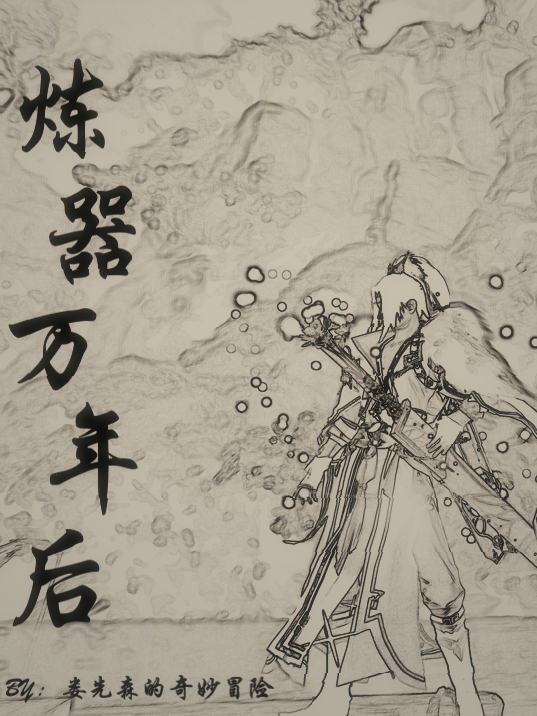 炼器万年后
BY：娄先森的奇妙冒险